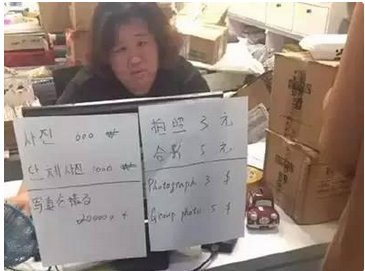 사진 000 ₩
단체사진 1000 ₩
写真を撮る
200000 ¥
拍照 3 元
合影 5 元
Photograph 3 $
Group photo 5 $